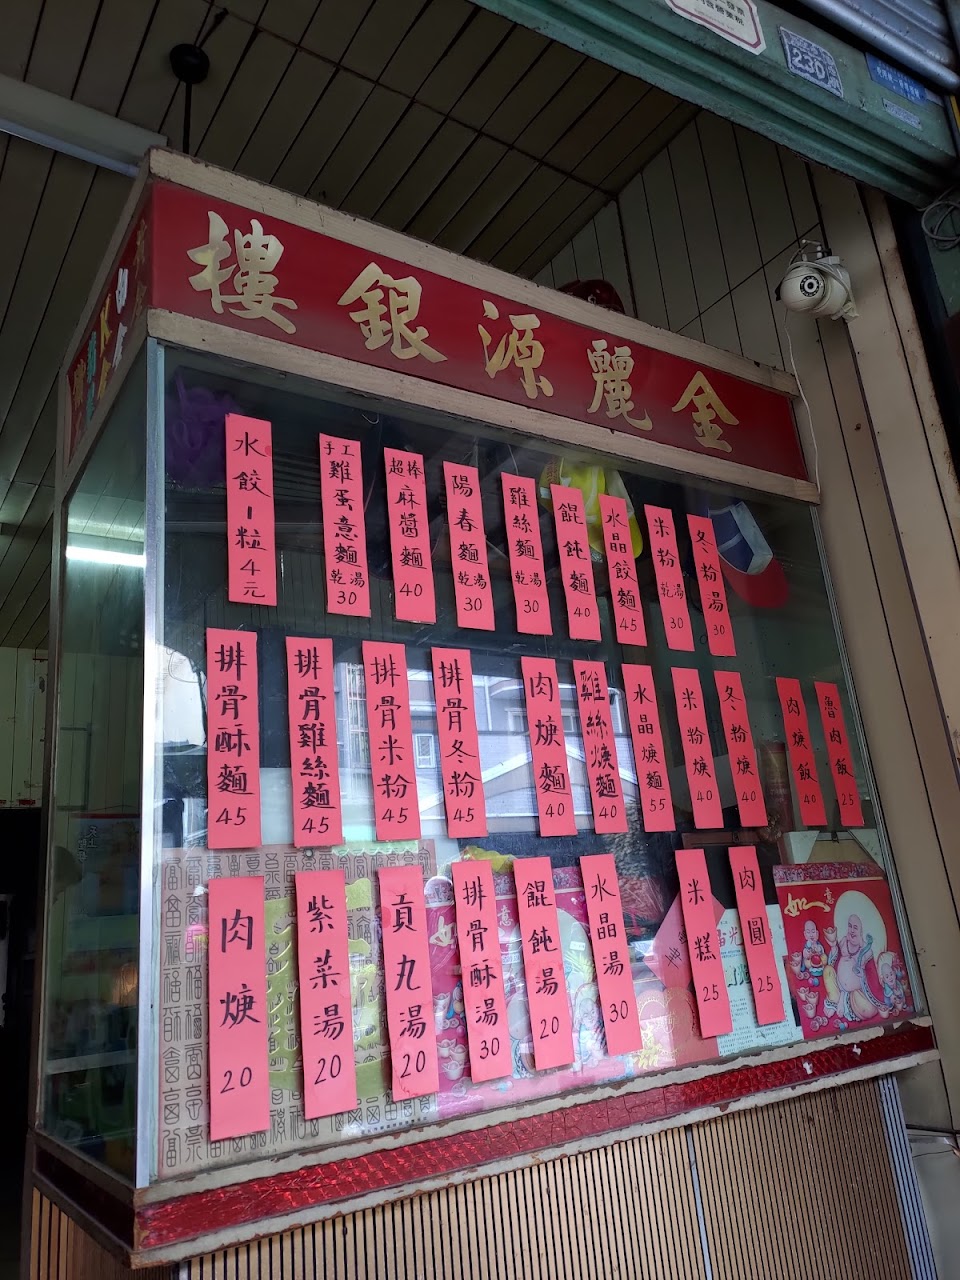 230
金麗源銀樓
水餃1粒4元
手工雞蛋意麵乾湯30
超棒麻醬麵40
陽春麵乾湯30
雞絲麵乾湯30
餛飩麵40
水晶餃麵45
米粉乾湯30
冬粉湯30
排骨酥麵45
排骨雞絲麵45
排骨米粉45
排骨冬粉45
肉焿麵40
雞絲焿麵40
水晶焿麵55
米粉焿40
冬粉焿40
肉焿飯40
魯肉飯25
肉焿20
紫菜湯20
貢丸湯20
排骨酥湯30
餛飩湯20
水晶湯30
米糕25
肉圓25
如意
如意